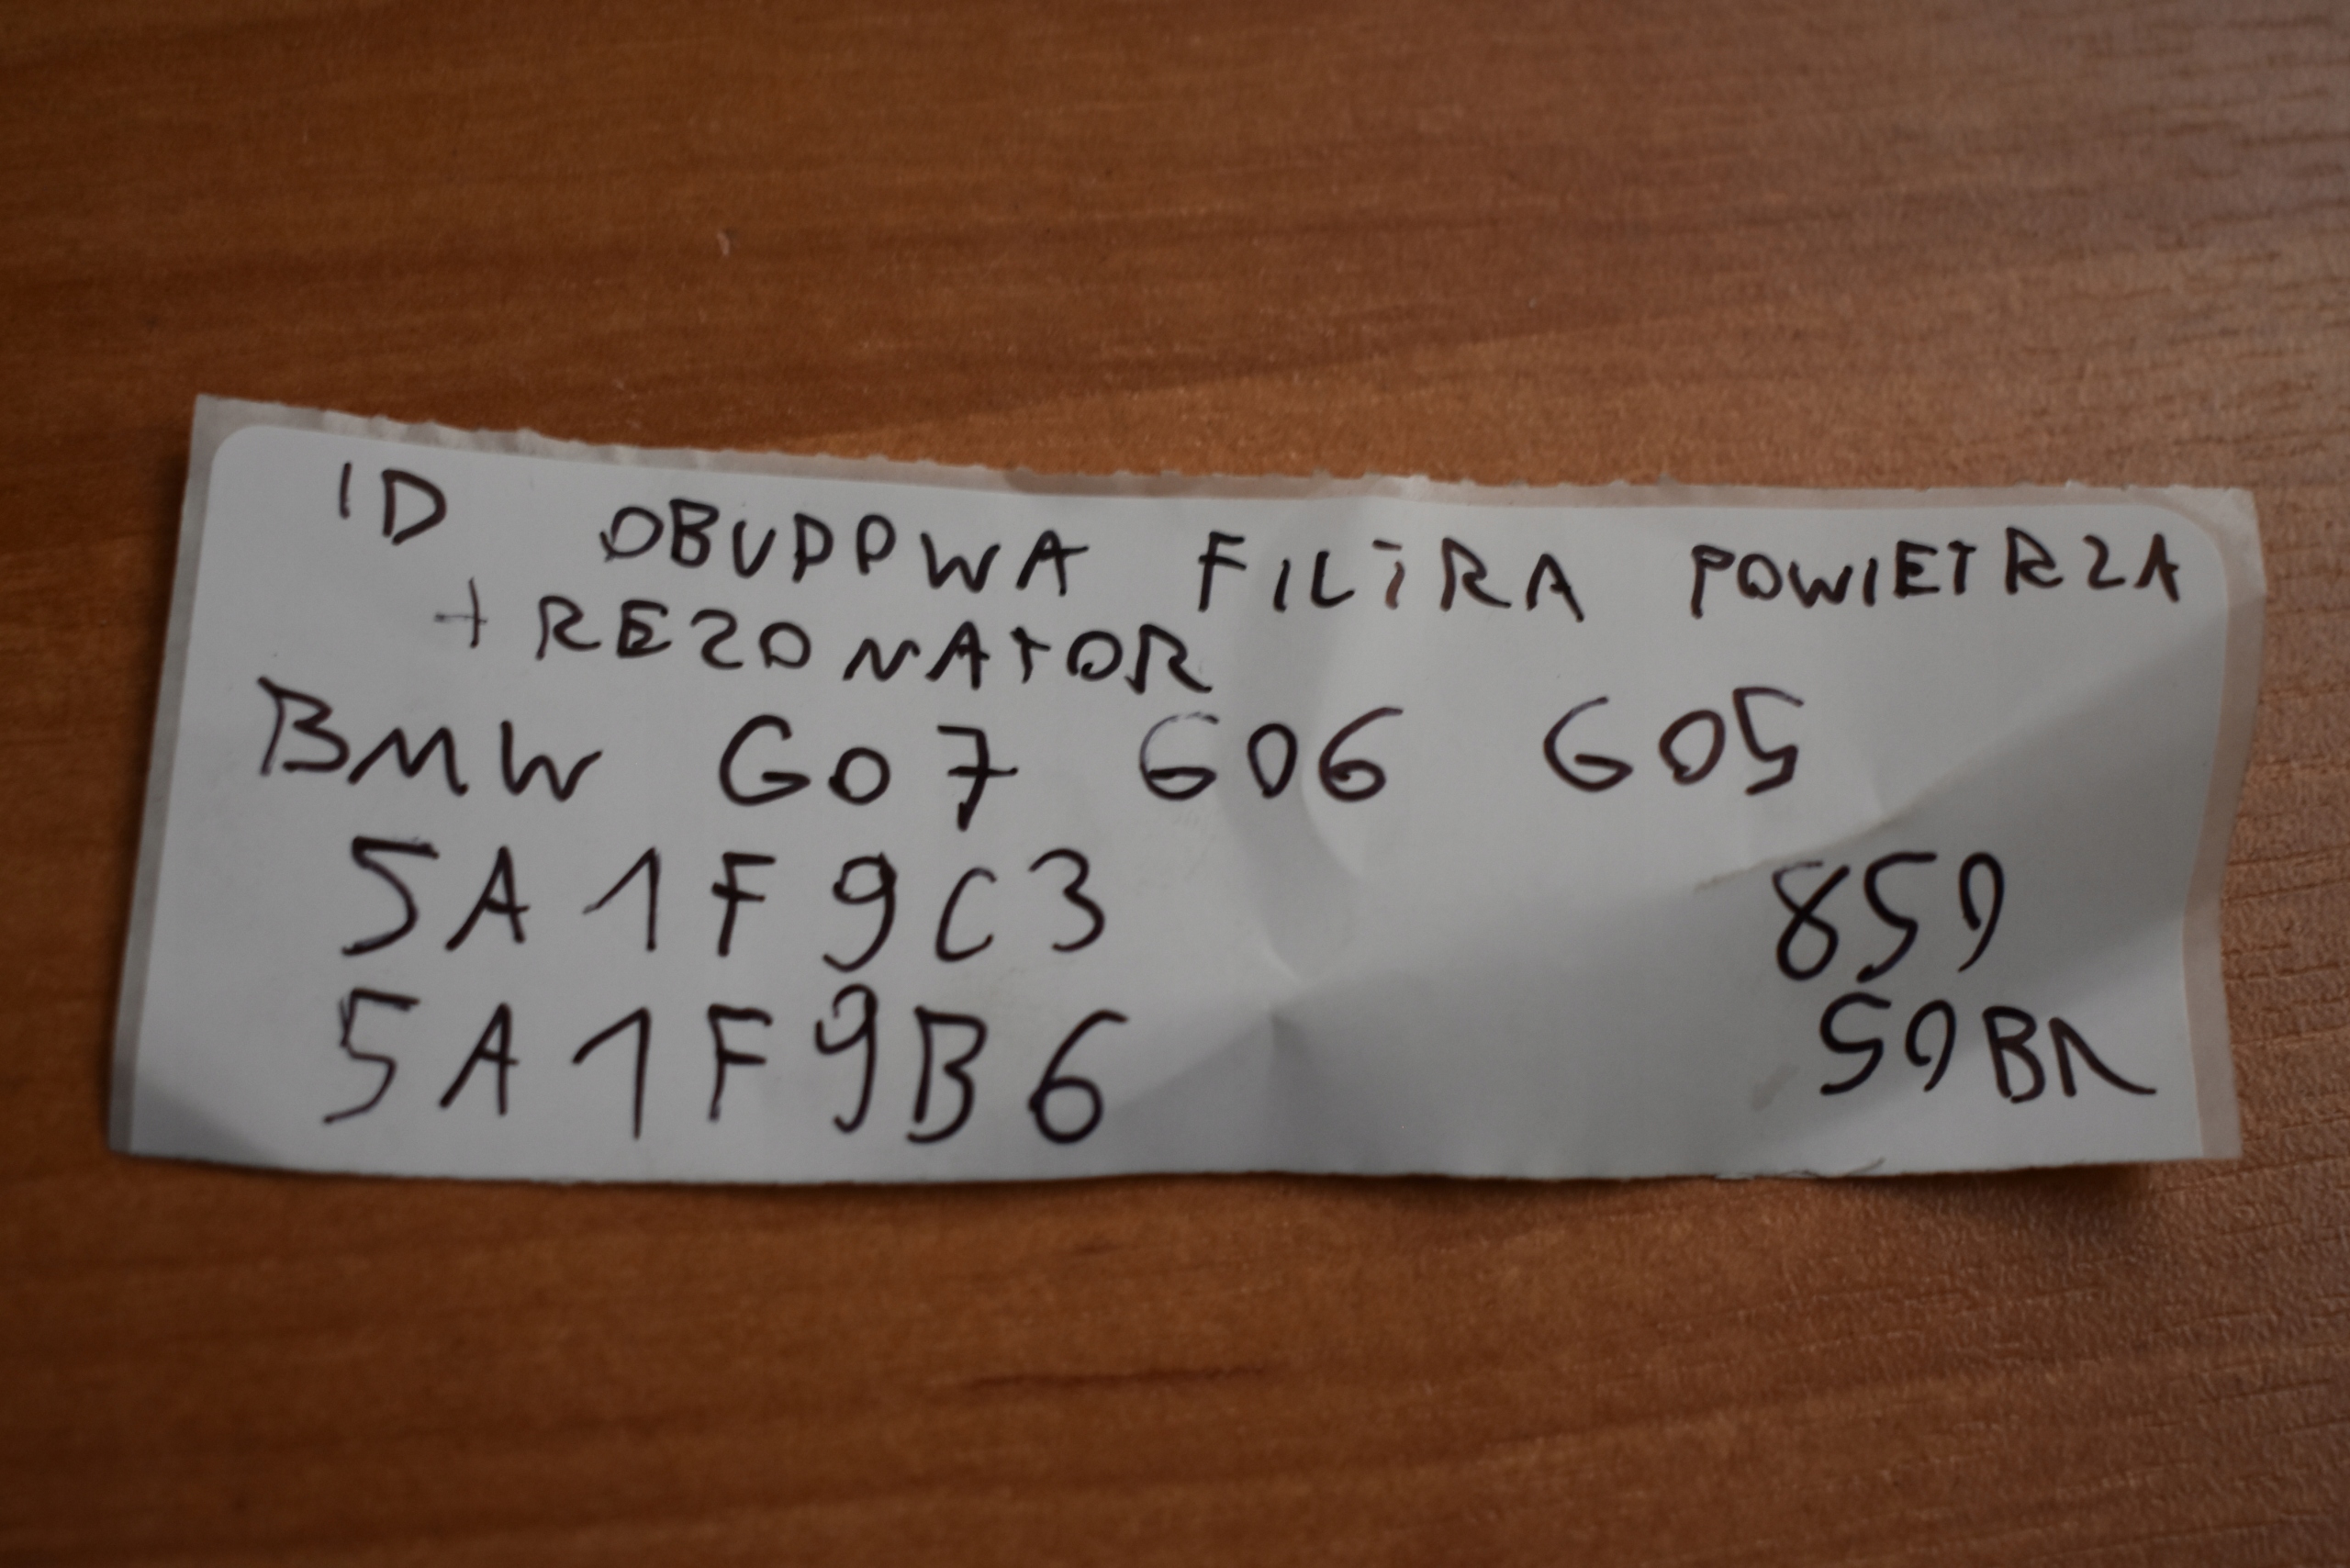 ID OBUDOWA FILTRA POWIETRZA
+ REZONATOR
BMW G07 G06 G05
5A1F9C3 850
5A1F9B6 50BR